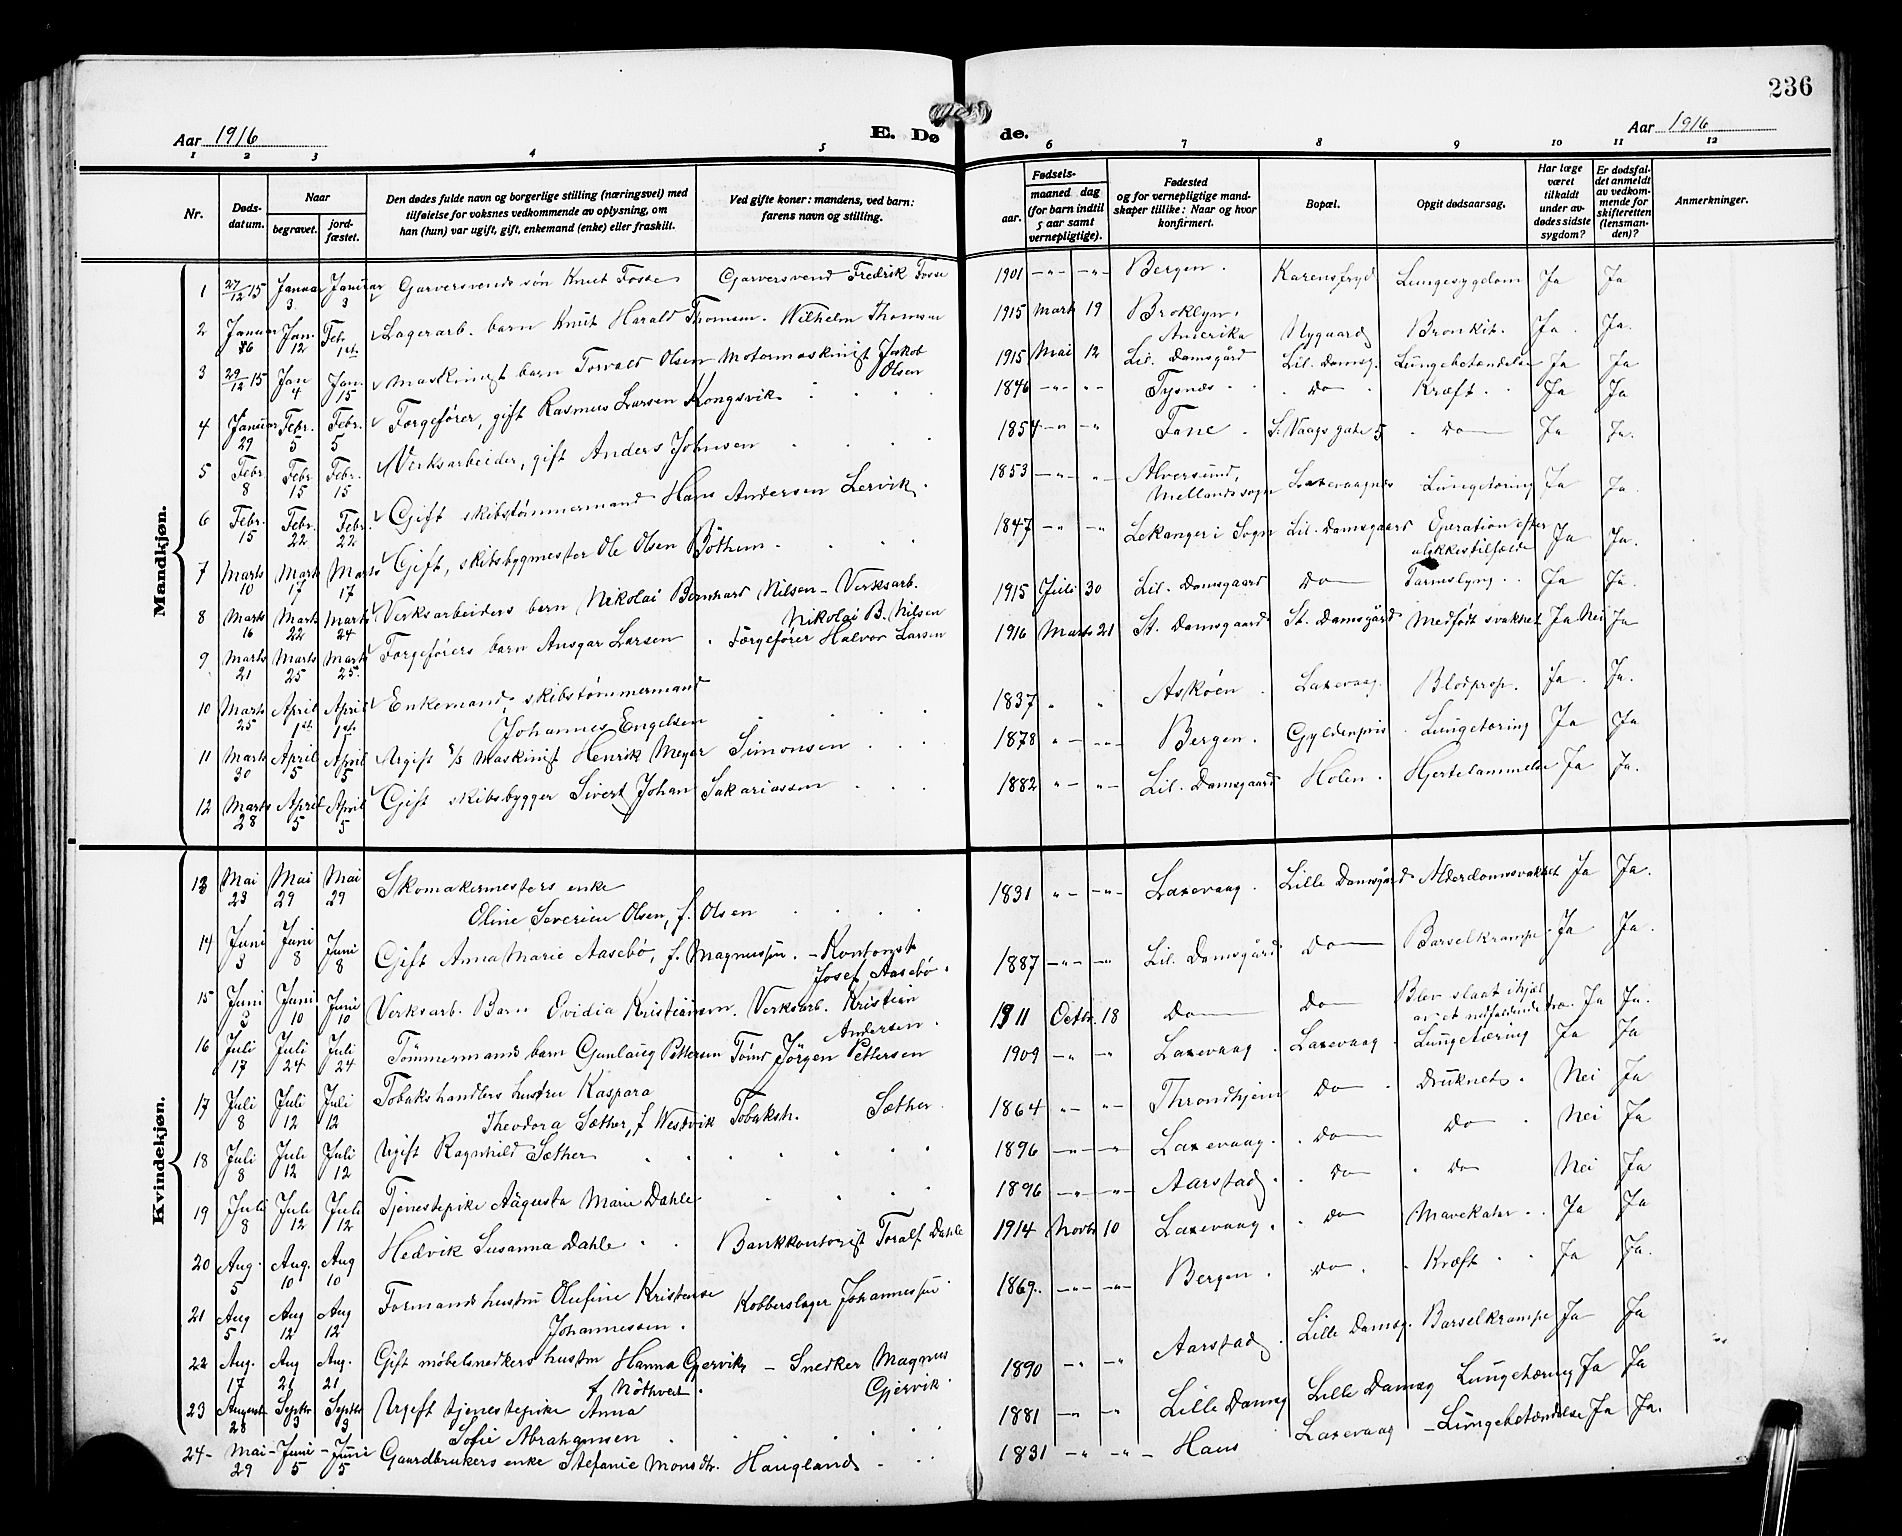 236
Aar 1916 E. Dø de. Aar 1916
1 2 3 4 5 6 7 8 9 10 11 12
Nr. Døds-datum. Naar begravet. jord-fæstet. Den dødes fulde navn og borgerlige stilling (næringsvei) med tilføielse for voksnes vedkommende av oplysning, om han (hun) var ugift, gift, enkemand (enke) eller fraskilt. Ved gifte koner: mandens, ved barn: farens navn og stilling. Fødsels- aar. maaned dag (for barn indtil 5 aar samt vernepligtige). Fødested og for vernepligtige mandskaper tillike: Naar og hvor konfirmert. Bopæl. Opgit dødsaarsag. Har læge været tilkaldt under avdødes sidste sygdom? Er dødsfaldet anmeldt av vedkommende for skifteretten (lensmanden)? Anmerkninger.
Mandkjøn.
1 27/12 15 Januar 3 Januar 3 Garversvends søn Knut Fosse Garversvend Fredrik Fosse 1901 -"- -"- Bergen. Karensfryd Lungesygdom Ja Ja
2 Januar 6 Jan. 12 Feb. 1st. Lagerarb. barn Knut Harald Thomsen. Wilhelm Thomsen 1915 Marts 19 Broklyn, Amerika Nygaard Bronkit. Ja. Ja.
3 29/12 15 Jan 4 Jan. 15 Maskinist barn Torvald Olsen Motormaskinist Jakob Olsen 1915 Mai 12 Lil. Damsgård Lil. Damsg. Lungebetændelse Ja Ja
4 Januar 29 Febr. 5 Febr. 5 Forgefører, gift Rasmus Larsen Kongsvik 1846 -"- -"- Tysnæs do Kræft Ja Ja
5 Febr 8 Febr 15 Febr. 15 Verksarbeider, gift Anders Johnsen 1854 -"- -"- Fane S. Vaags gate 5 do Ja Ja.
6 Febr. 15 Febr. 22 Febr. 22 Gift skibstømmermand Hans Andersen Lervik. 1853 -"- -"- Alversund, Mellandssogn Laxevaagnes Lungetæring Ja Ja.
7 Marts 10 Marts 17 Marts 17 Gift, skibsbygmester Ole Olsen Böthun. 1847 -"- -"- Lekanger i Sogn Lil. Damsgaard Operation efter ulykkestilfælde Ja Ja.
8 Marts 16 Marts 22 Marts 24 Verksarbeiders barn Nikolai Bernhard Nilsen - Verksarb. Nikolai B. Nilsen 1915 Juli 30 Lil. Damsgaard Do Tarmslyng Ja Ja.
9 Marts 21 Marts 25 Marts 25. Forgeførers barn Ansgar Larsen Færgefører Halvor Larsen 1916 Marts 21 St. Damsgaard St. Damsgård Medfødt svakhet Ja Nei Ja
10 Marts 25 April 1st. April 1st. Enkemand, skibstømmermand Johannes Engelsen 1837 " " Askøen Laxevaag. Blodprop. Ja. Ja.
11 Marts 30 April 5 April 5 Ugift s/s Maskinist Henrik Meyer Simonsen 1878 "- -"- Bergen. Gyldenpris Lungetæring Ja Ja
12 Marts 28 April 5 April 5 Gift skibsbygger Sivert Johan Sakariassen 1882 "- "- Lil. Damsgaard Holen. Hjertelammelse Ja Ja.
Kvindekjøn.
13 Mai 23 Mai 29 Mai 29 Skomakermesters enke Oline Severine Olsen, f. Olsen 1831 "- -"- Laxevaag. Lille Damsgård Alderdomsvakhet Ja Ja.
14 Juni 3 Juni 8 Juni 8 Gift Anna Marie Aasebø, f. Magnussen. - Kontorist Josef Aasebø. 1887 -"- -"- Lil. Damsgård Do Barselkrampe. Ja Ja.
15 Juni 3 Juni 10 Juni 10 Verksarb. Barn Ovidia Kristiansen. Verksarb. Kristian Andersen. 1911 Octbr. 18 Do Do Blev slaat ihjel av et nedfaldende træ. Ja Ja.
16 Juli 17 Juli 24 Juli 24 Tømmermands barn Gunlaug Pettersen Tømd Jörgen Pettersen 1909 -"- -"- Laxevaag. Laxevaag. Lungetæring Ja Ja
17 Juli 8 Juli 12 Juli 12 Tobakshandlers hustru Kaspara Theodora Sæther, f Westvik Tobaksh. Sæther. 1864 -"- -"- Throndhjem Do Druknet. Nei Ja
18 Juli 8 Juli 12 Juli 12 Ugift Ragnhild Sæther 1896 -"- -"- Laxevaag. Do Do Nei Ja
19 Juli 8 Juli 12 Juli 12 Tjenestepike Augusta Marie Dahle 1896 -"- -"- Aarstad. Do Do Nei Ja
20 Aug. 5 Aug. 10 Aug 10 Hedvik Susanna Dahle Bankkontorist Toralf Dahle 1914 Novbr 10 Laxevaag. Do Mavekatar Ja Ja
21 Aug 5 Aug 12 Aug 12 Formands hustru Olufine Kristense Johannessen. Kobberslager Johannessen 1869. -"- -"- Bergen. Do. Kræft Ja Ja.
22 Aug. 17 Aug 21 Aug. 21 Gift møbelsnedkers hustru Hanna Gjervik, f Nöthvedt. - Snedker Magnus Gjervik. 1890 -"- -"- Aarstad. Lille Damsg. Barselkrampe Ja Ja
23 August 28 Septbr 3 Septbr 3 Ugift tjenestepike Anna Sofie Abrahamsen 1881 -"- -"- Lille Damsg Lille Damsg Lungetæring Ja Ja
24- Mai 29 - Juni 5 - Juni 5 Gaardbrukers enke Stefanie Monsdtr. Haugland 1831 -"- -"- Haus Laxevaag - Lungebetændelse Ja Ja.